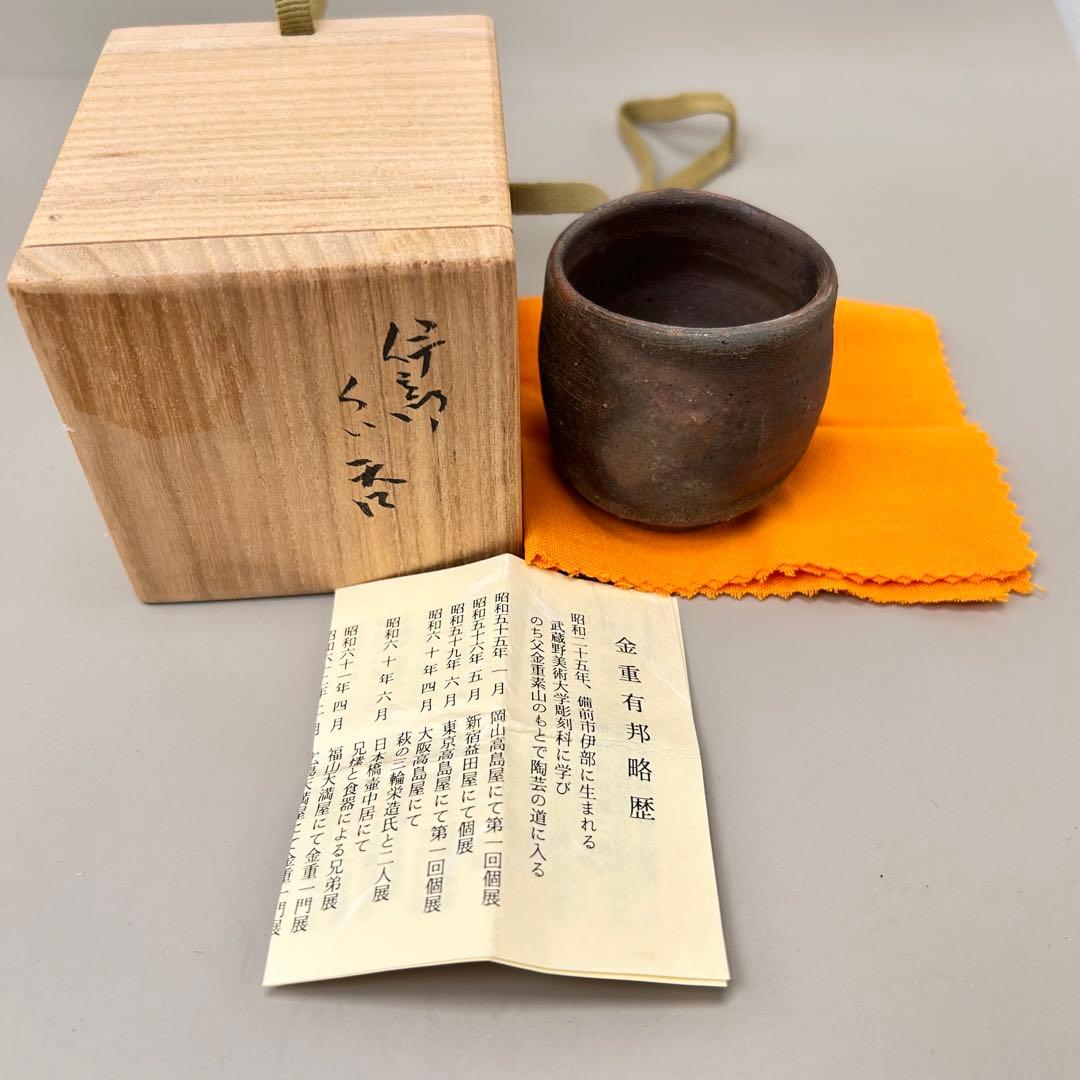 伊部
ぐい呑
金重有邦略歴
昭和二十五年、備前市伊部に生まれる
武蔵野美術大学彫刻科に学び
のち父金重素山のもとで陶芸の道に入る
昭和五十五年 一月 岡山高島屋にて第一回個展
昭和五十六年 五月 新宿益田屋にて個展
昭和五十九年 六月 東京高島屋にて第一回個展
昭和六十年 四月 大阪高島屋にて
萩の三輪栄造氏と二人展
昭和六十年 六月 日本橋壷中居にて
兄愫と食器による兄弟展
昭和六十一年 四月 福山天満屋にて金重一門展
天満屋にて金重一門展